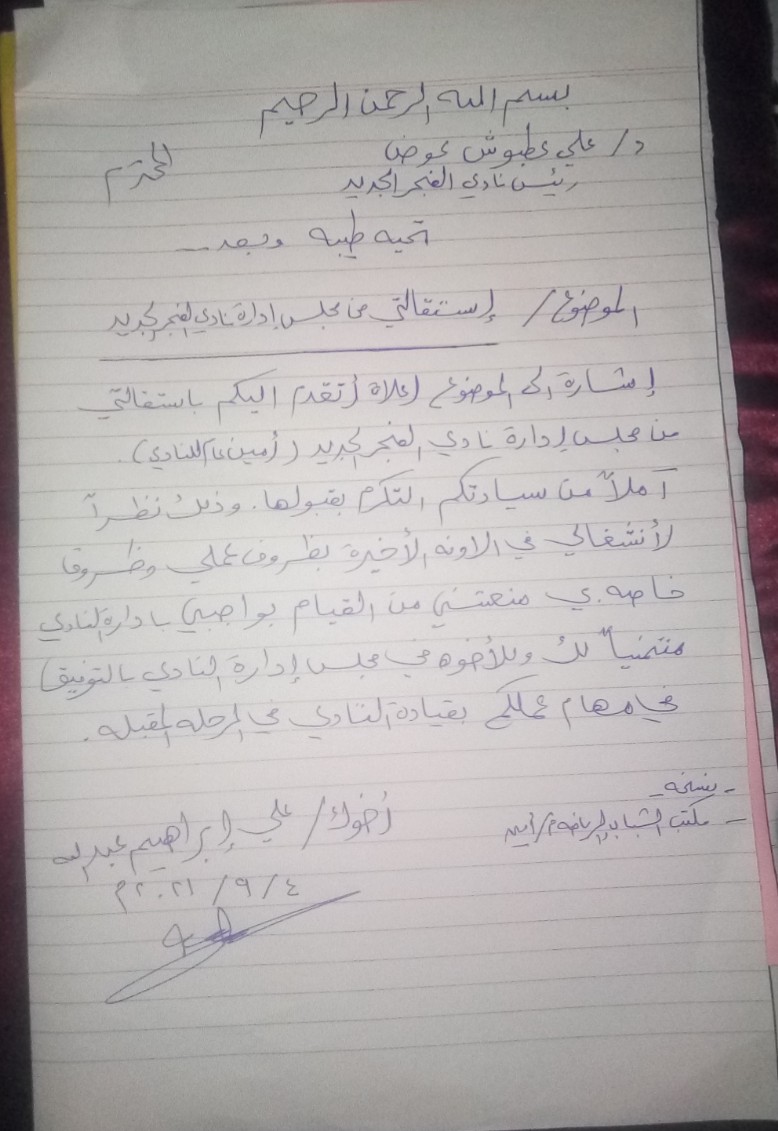 بسم الله الرحمن الرحيم
د/ علي عطبوش عوض المحترم
رئيس نادي الفجر الجديد
تحيه طيبه وبعد ....
الموضوع / إستقالتي من مجلس إدارة نادي الفجر الجديد
إشارة الى الموضوع إعلاة أتقدم اليكم باستقالتي
من مجلس إدارة نادي الفجر الجديد (أمين عام للنادي).
آملاً من سيادتكم التكرم بقبولها. وذلك نظراً
لأنشغالي في الاونه الأخيرة بظروف عملي وظروف
خاصه بي منعتني من القيام بواجبي بادارة النادي
متمنياً لك وللأخوه في مجلس إدارة النادي بالتوفيق
في مهام عملكم بقيادة النادي في المرحله المقبله.
- نسخه -
- مكتب الشباب والرياضه م/أبين
أخوك / علي إبراهيم عبدالله
٤ / ٩ / ٢٠٢١م